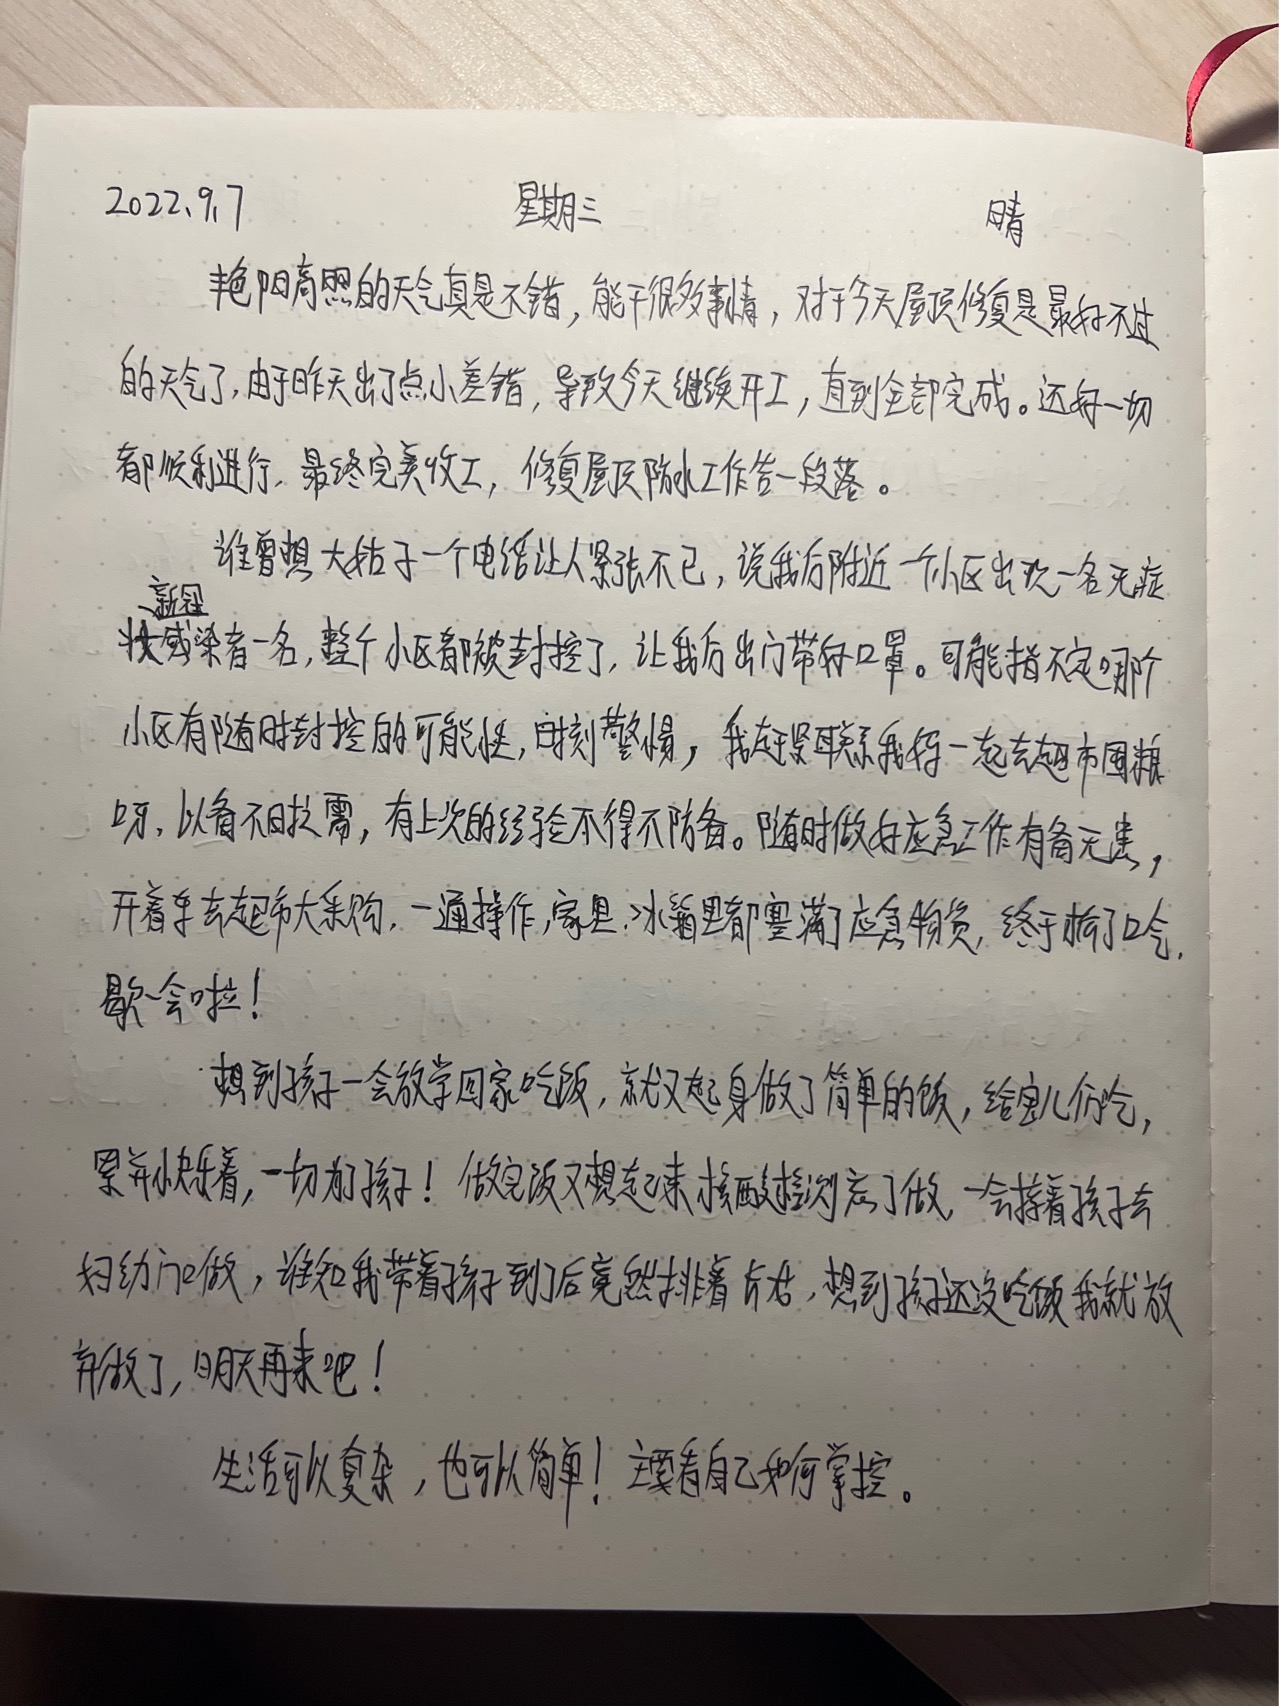 2022.9.7 星期三 晴
艳阳高照的天气真是不错，能干很多事情，对于今天屋顶修复是最好不过
的天气了，由于昨天出了点小差错，导致今天继续开工，直到全部完成。还好一切
都顺利进行，最终完美收工，修复屋顶防水工作告一段落。
谁曾想大姑子一个电话让人紧张不已，说我后附近一个小区出现一名无症
新冠
状感染者一名，整个小区都被封控了，让我后出门带好口罩。可能指不定哪个
小区有随时封控的可能性，时刻警惕，我赶紧联系我一起去超市囤粮
呀，以备不日之需，有上次的经验不得不防备。随时做好应急工作有备无患，
开着车去超市大采购，一通操作，家里、冰箱里都塞满了应急物资，终于了口气，
歇一会啦！
想到孩子一会放学回家吃饭，就又起身做了简单的饭，给宝儿们吃，
累并快乐着，一切为了孩子！做完饭又想起来核酸检测忘了做，一会接着孩子去
妇幼门口做，谁知我带着孩子到了后竟然排着，想到孩子还没吃饭我就放
弃做了，明天再来吧！
生活可以复杂，也可以简单！主要看自己如何掌控。